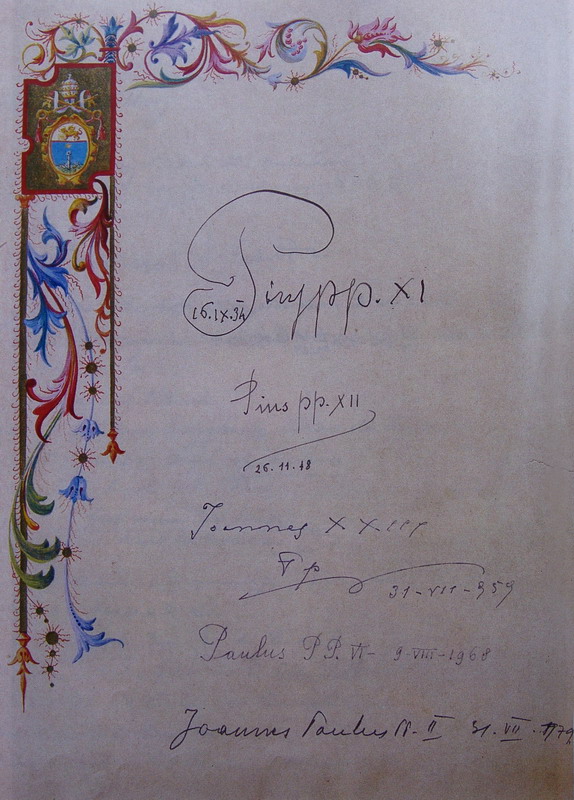 Pius pp. XI
16.IX.34
Pius pp. XII
26.11.48
Joannes XXIII
pp
31-VII-959
Paulus PP. VI - 9-VIII-1968
Joannes Paulus PP. II 31.VII.1979